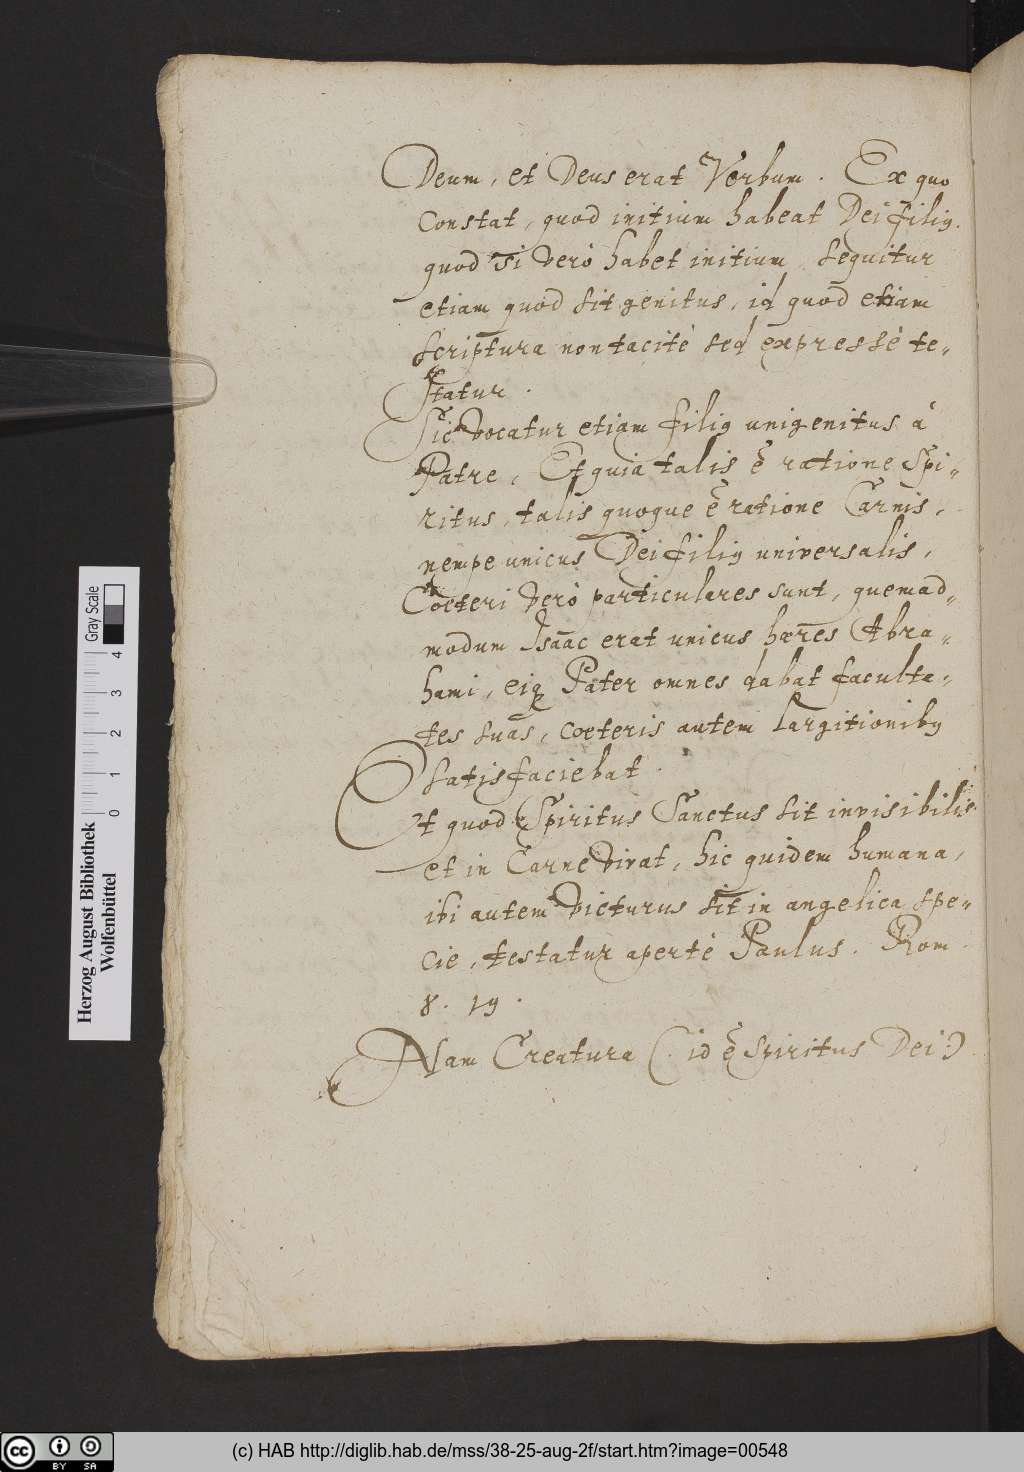 Deum, et Deus erat Verbum. Ex quo
constat, quod initium habeat Dei filiꝰ.
quod si verò habet initium sequitur
etiam quod sit genitus, id quod etiam
scriptura non tacitè sed expressè te-
statur.
Sic vocatur etiam filiꝰ unigenitus à
Patre, Et quia talis ē ratione Spi-
ritus, talis quoque ē ratione Carnis,
nempe unicus Dei filiꝰ universalis,
Coeteri verò particulares sunt, quemad-
modum Isaac erat unicus hæres Abra-
hami, eiq Pater omnes dabat faculta-
tes suas, coeteris autem largitionibꝰ
satisfaciebat.
Et quod Spiritus Sanctus sit invisibilis
et in Carne vivat, hic quidem humana,
ibi autem victurus sit in angelica spe-
cie, testatur apertè Paulus. Rom.
8. 19.
Nam Creatura (: id ē Spiritus Dei :)
Herzog August Bibliothek
Wolfenbüttel
0 1 2 3 4
Gray Scale
cc BY SA
(c) HAB http://diglib.hab.de/mss/38-25-aug-2f/start.htm?image=00548